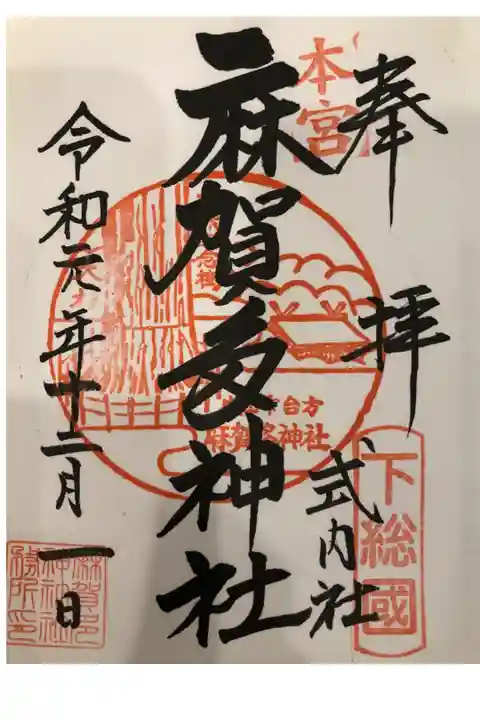 奉拝
本宮
式内社
下総國
麻賀多神社
台方
麻賀多神社
令和元年十二月一日
麻賀多
神社
務所印